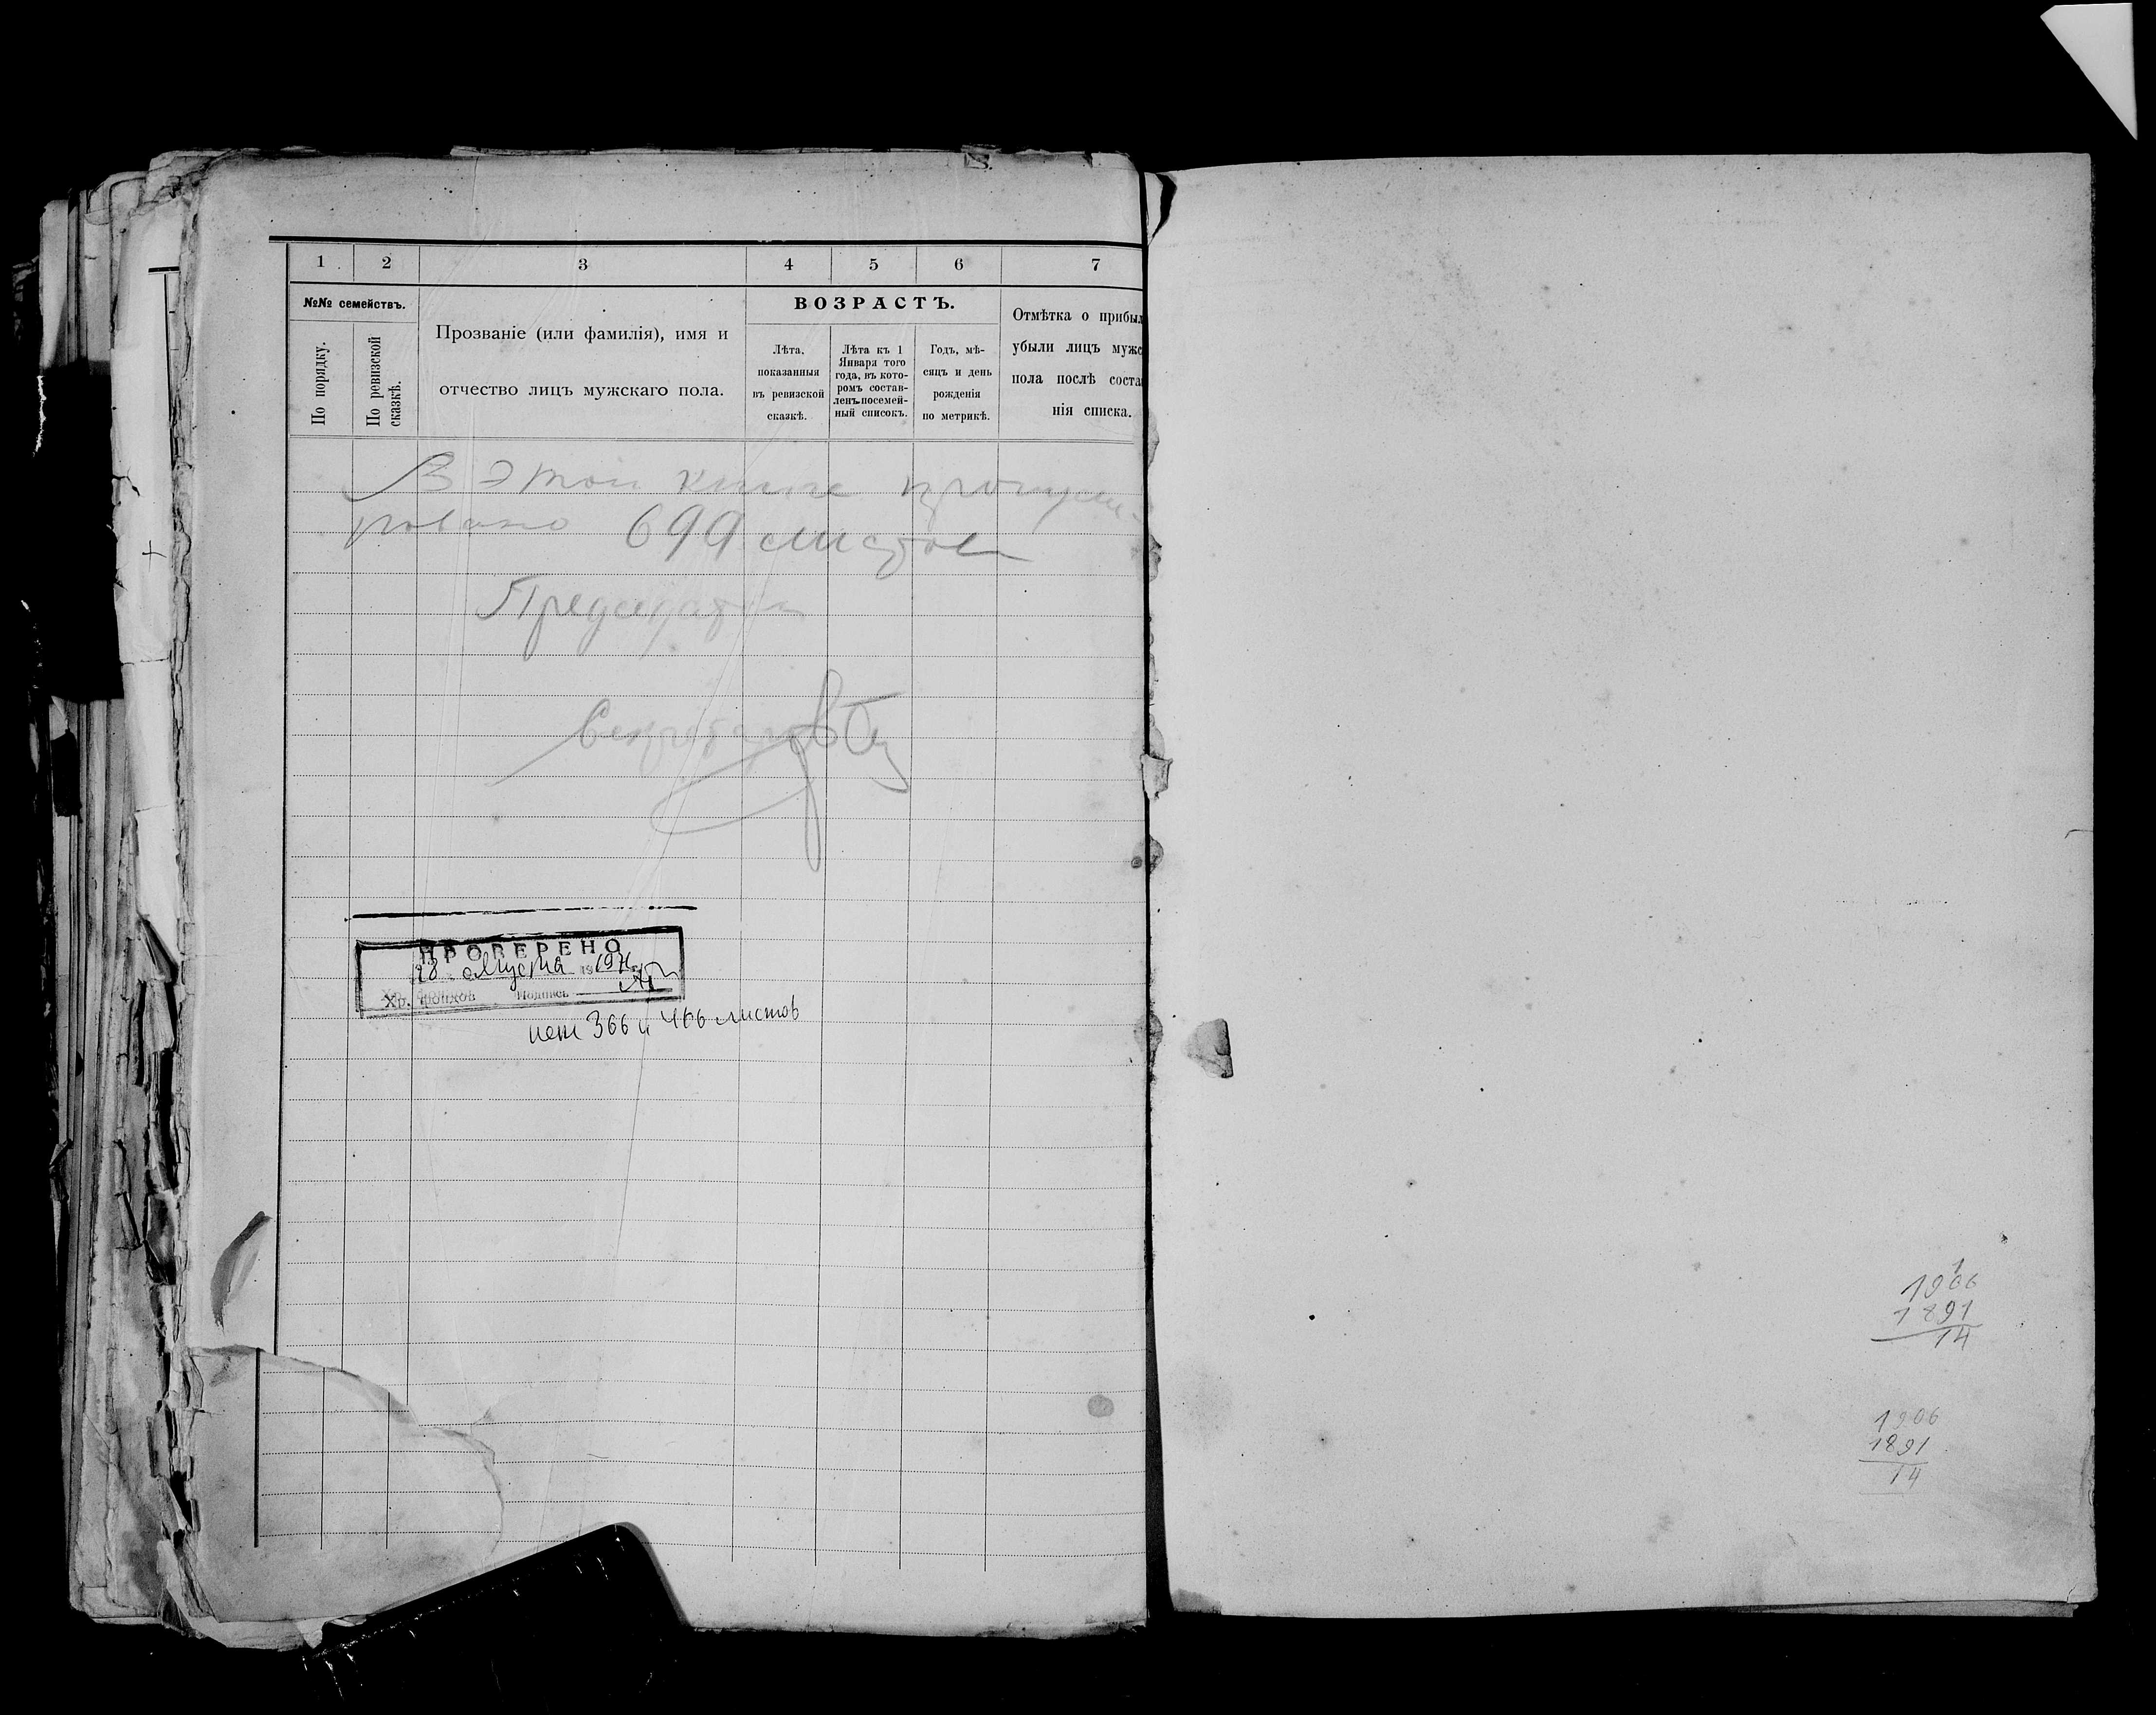 1 2 3 4 5 6 7
№№ семействъ.
По порядку.
По ревизской
сказкѣ.
Прозваніе (или фамилія), имя и
отчество лицъ мужскаго пола.
ВОЗРАСТЪ.
Лѣта,
показанныя
въ ревизской
сказкѣ.
Лѣта къ 1
Января того
года, въ кото-
ромъ состав-
ленъ посемей-
ный списокъ.
Годъ, мѣ-
сяцъ и день
рожденія
по метрикѣ.
Отмѣтка о прибыл
убыли лицъ мужс
пола послѣ соста
нія списка.
В этой книге пронуме-
ровано 699 листов
Председатель
Секретарь
ПРОВЕРЕНО
28 августа
Хр. фондов Подпись
нет 366 и листов
1906
1891
14
1906
1891
14